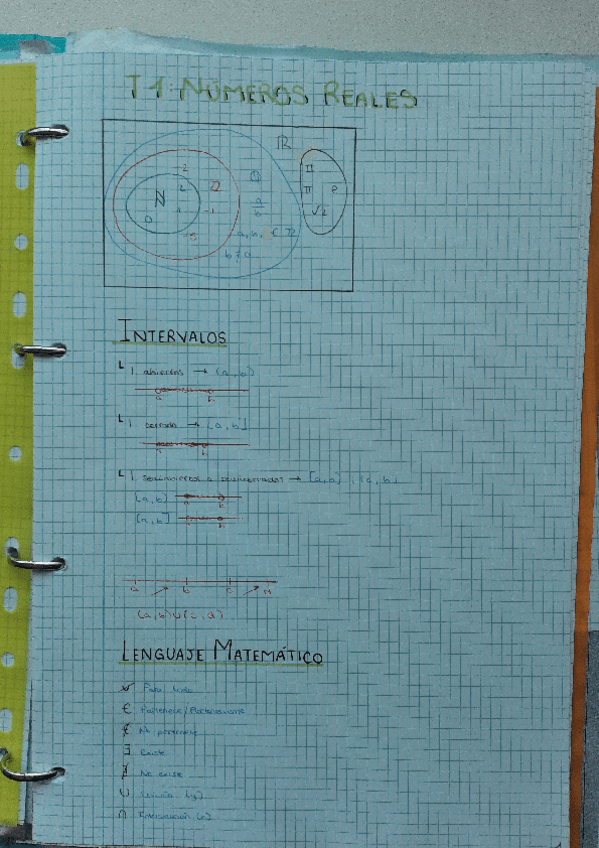 T 1: NÚMEROS REALES
ℝ
-2
ℚ
II
N
2
Z
a/b
π
e
0
1
-1
√2
-5
a, b, ∈ Z
b ≠ 0
INTERVALOS
I. abiertos → (a, b)
a b
I. cerrado → [a, b]
a b
I. semiabiertos o semicerrados →
[a, b)
a b
(a, b]
a b
a b c d
(a, b) ∪ (c, d)
LENGUAJE MATEMÁTICO
∀ Para todo
∈ Pertenece/
∉ No pertenece
∃ Existe
∄ No existe
∪ Unión
∩ Intersección